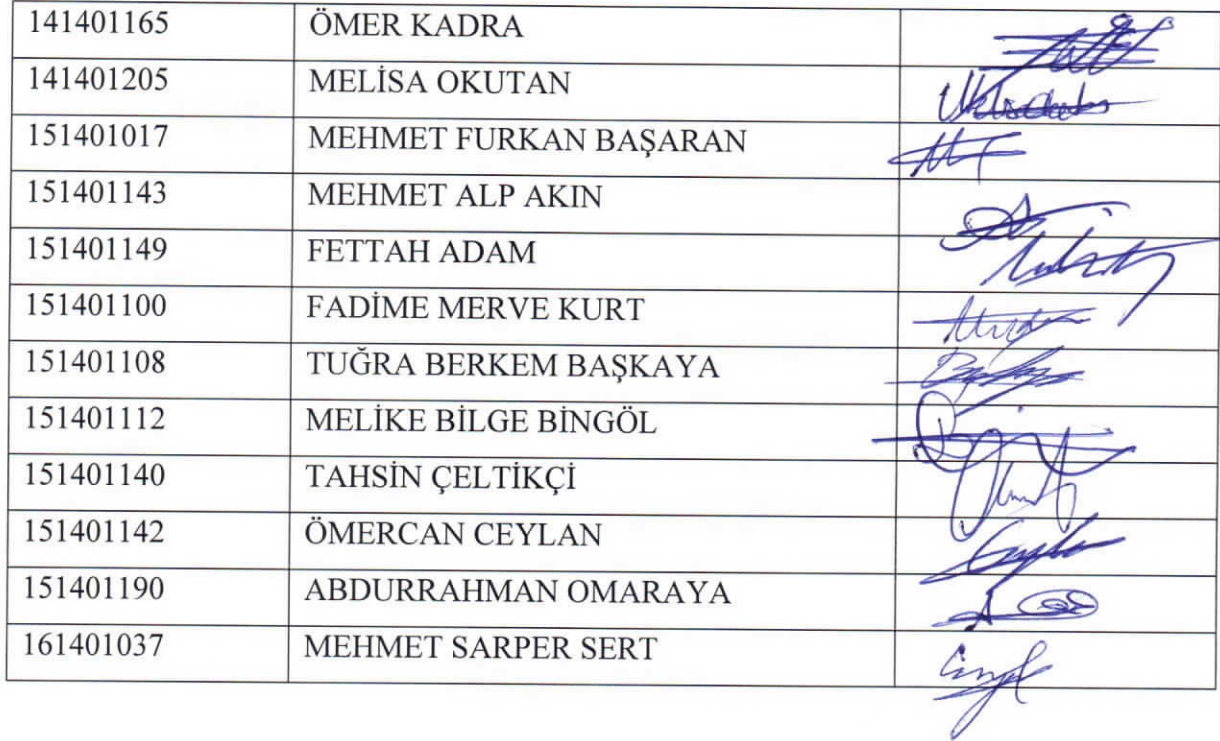 141401165 ÖMER KADRA
141401205 MELİSA OKUTAN
151401017 MEHMET FURKAN BAŞARAN
151401143 MEHMET ALP AKIN
151401149 FETTAH ADAM
151401100 FADİME MERVE KURT
151401108 TUĞRA BERKEM BAŞKAYA
151401112 MELİKE BİLGE BİNGÖL
151401140 TAHSİN ÇELTİKÇİ
151401142 ÖMERCAN CEYLAN
151401190 ABDURRAHMAN OMARAYA
161401037 MEHMET SARPER SERT